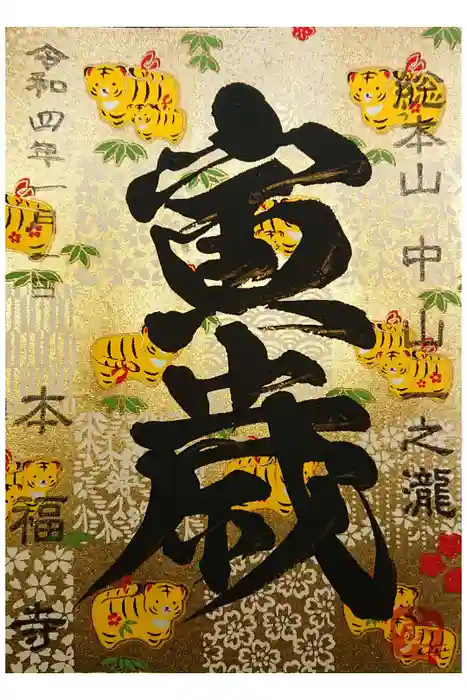 総本山 中山一之瀧
寅歳
令和四年一月一日 本福寺